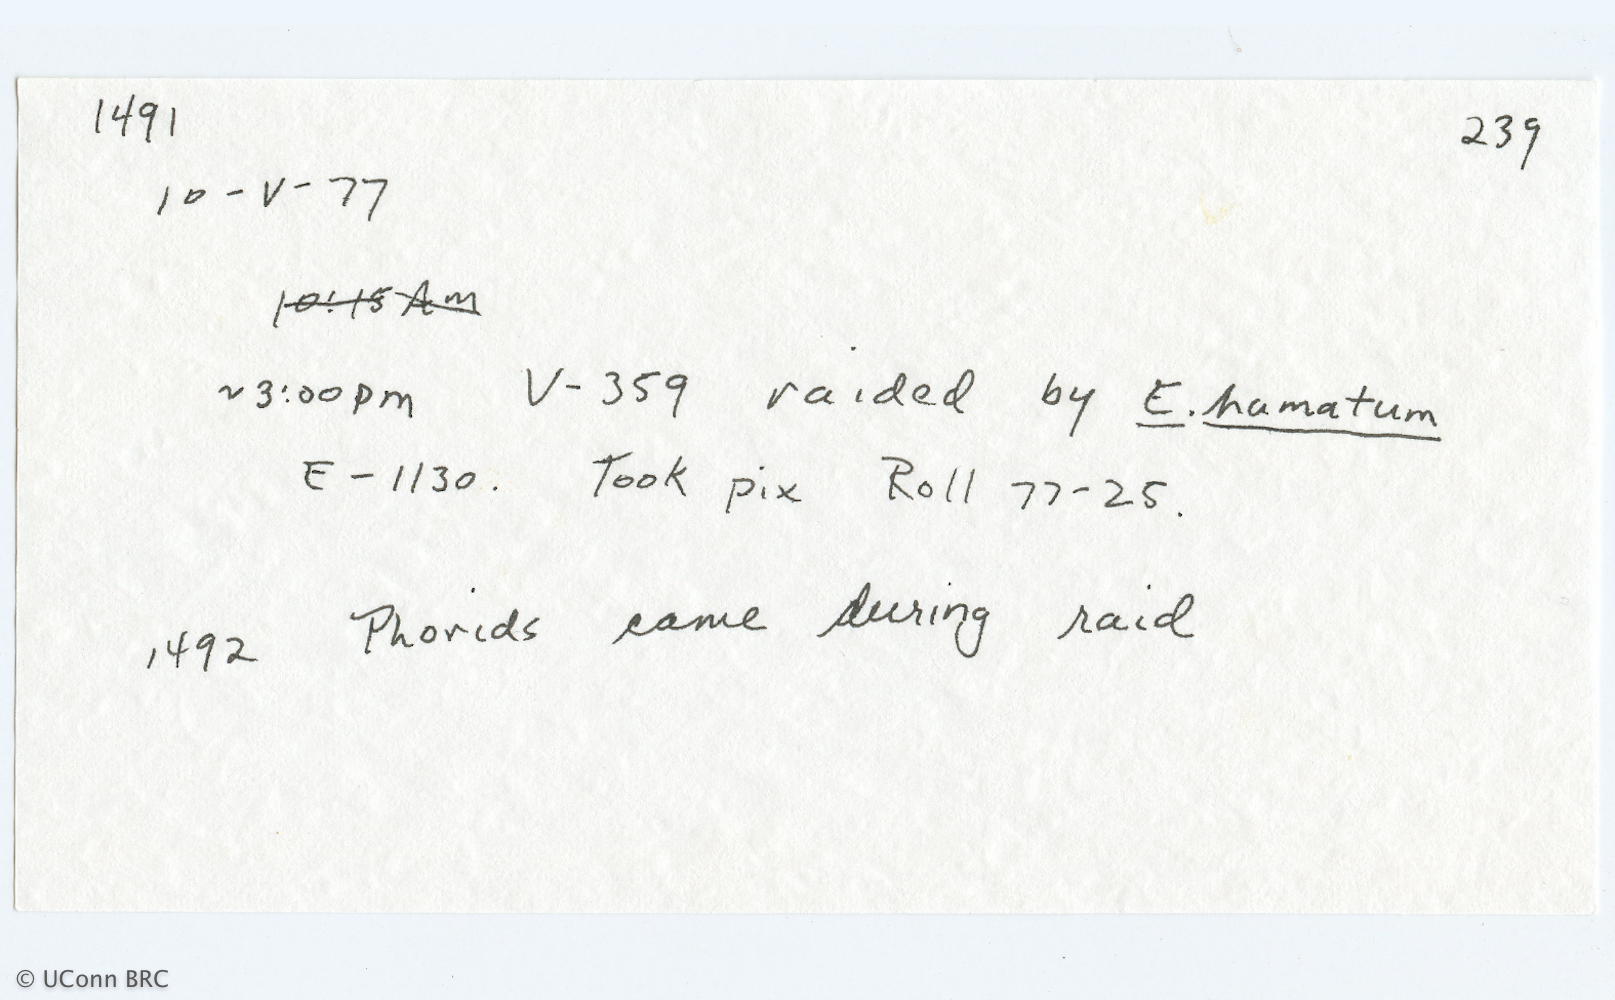 1491
239
10-V-77
10:15 Am
~3:00pm V-359 raided by E. hamatum
E-1130. Took pix Roll 77-25.
1492 Phorids came during raid
© UConn BRC